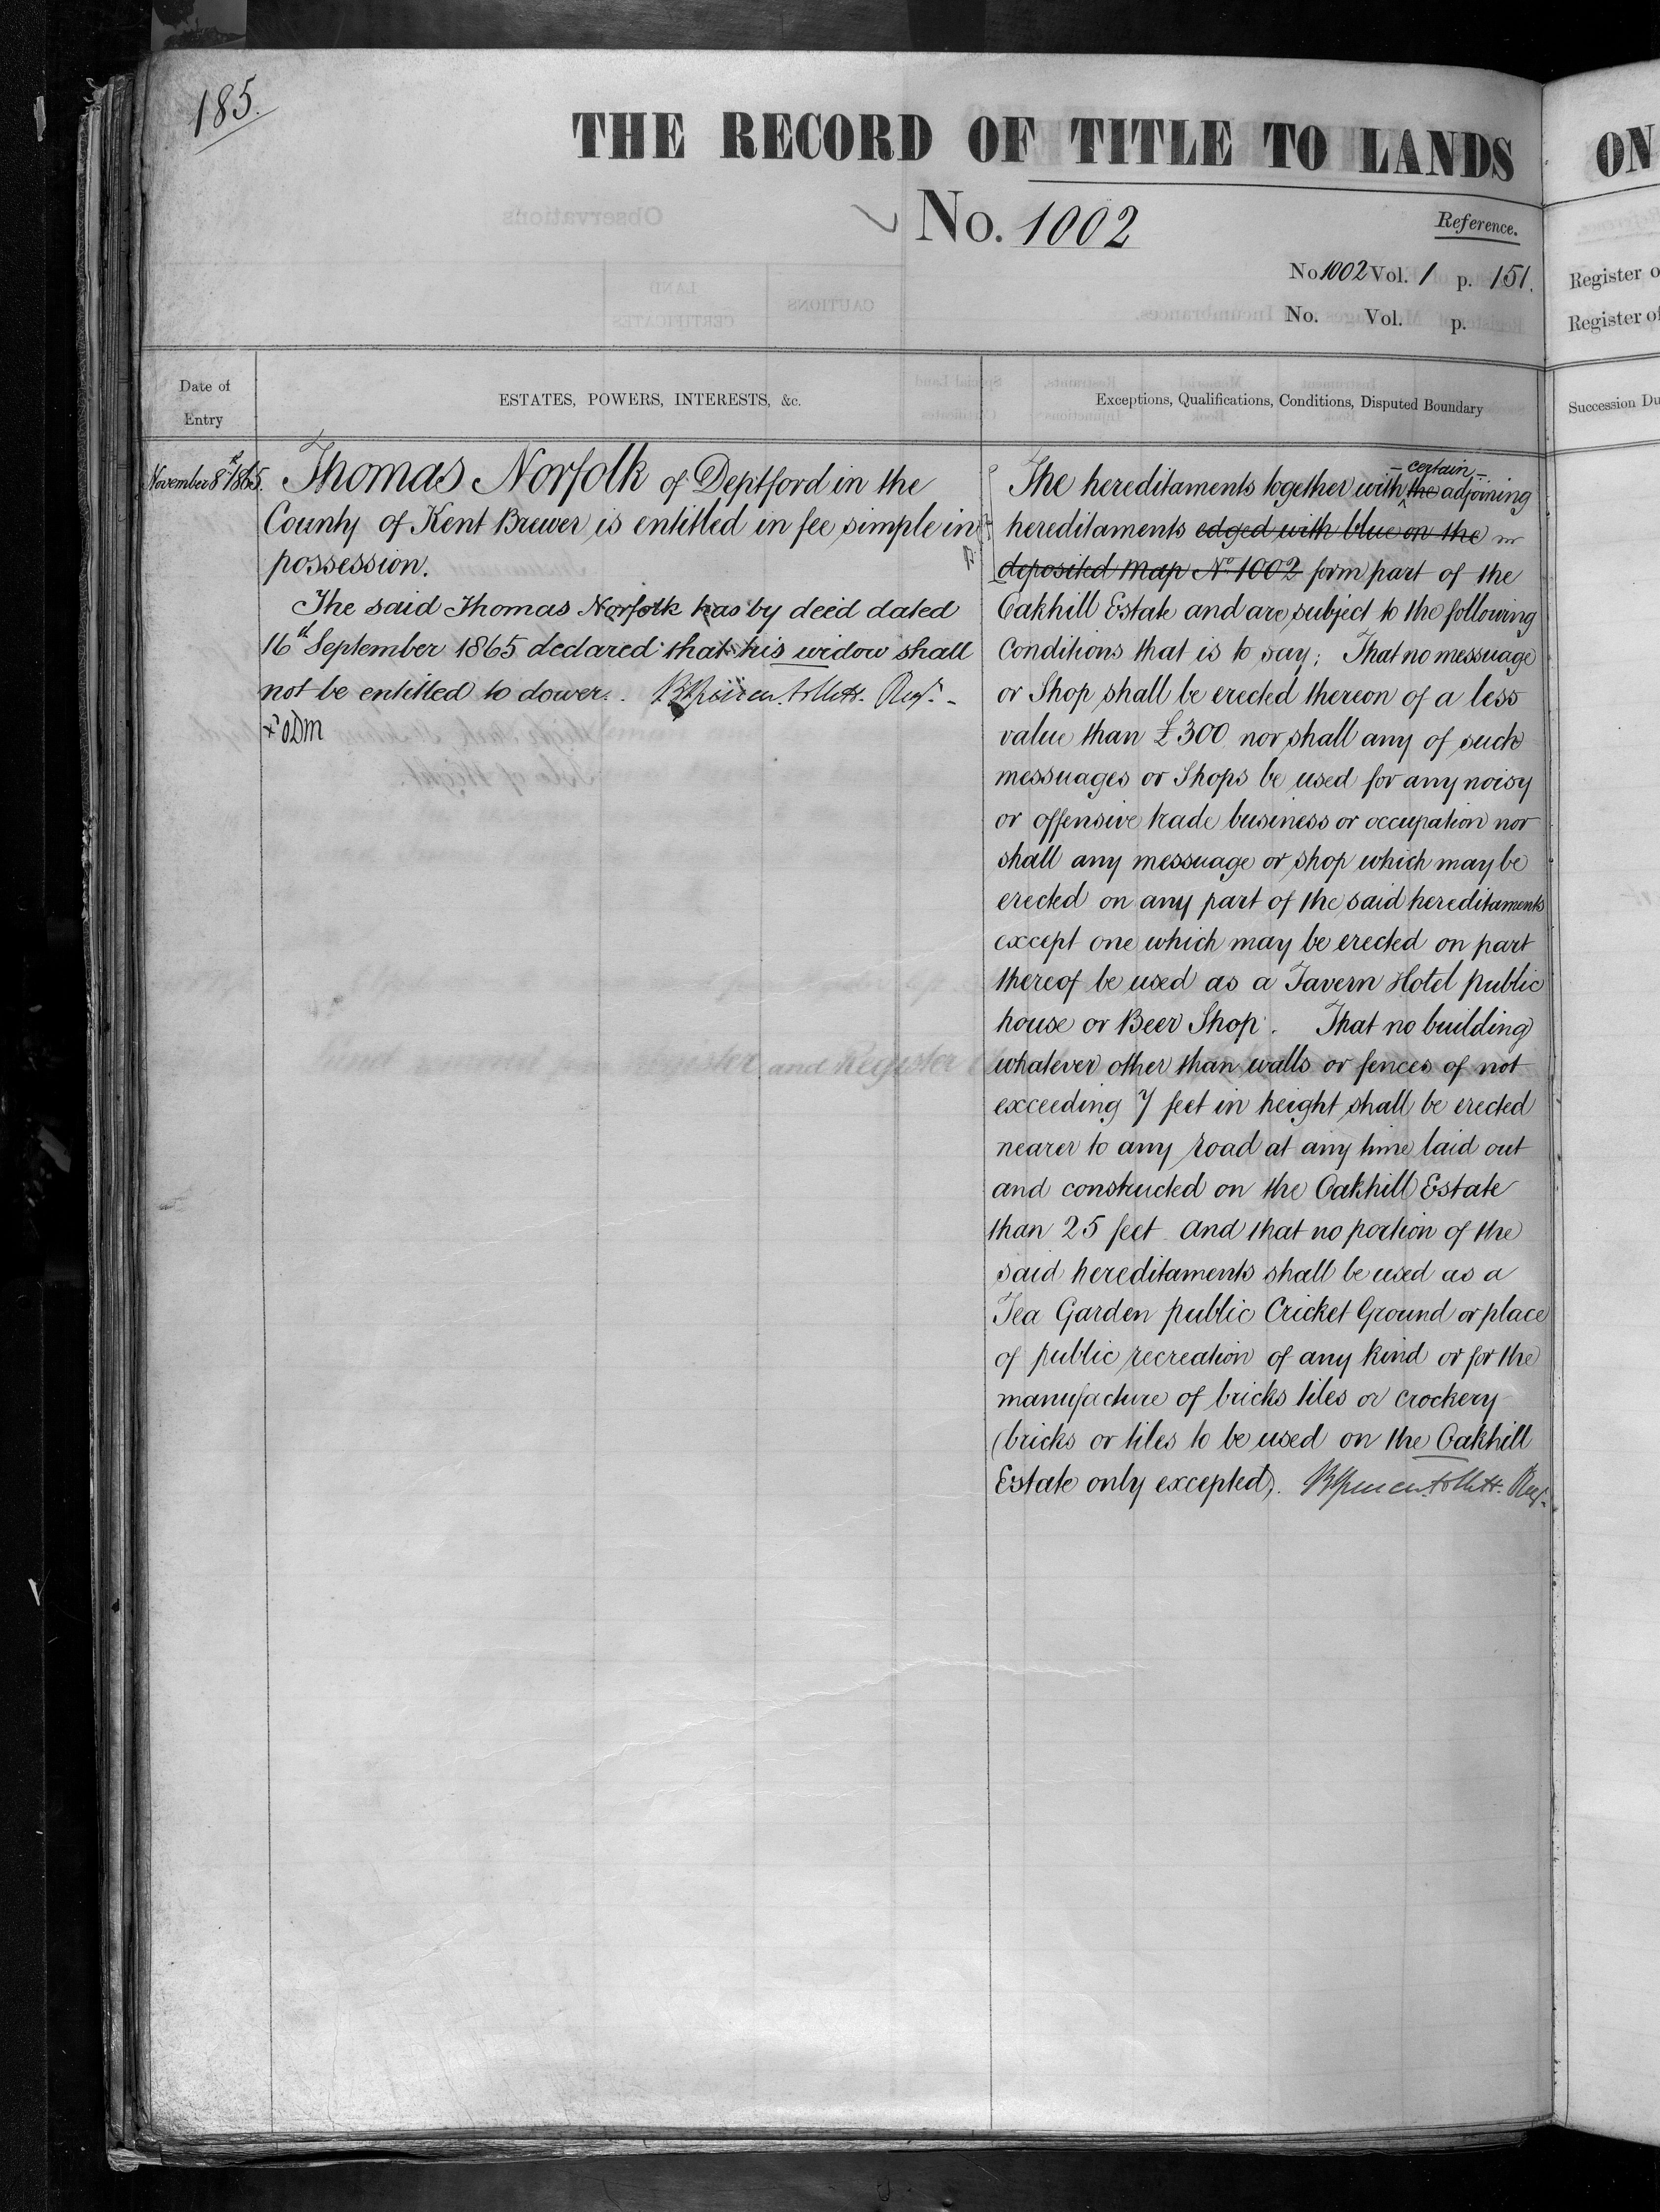 185.
THE RECORD OF TITLE TO LANDS
No. 1002
Reference.
No 1002 Vol. 1 p. 151.
No. Vol. p.
Date of
Entry
ESTATES, POWERS, INTERESTS, &c.
Exceptions, Qualifications, Conditions, Disputed Boundary
November 8th 1865.
Thomas Norfolk of Deptford in the
County of Kent Brewer is entitled in fee simple in
possession.
The said Thomas Norfolk has by deed dated
16th September 1865 declared that his widow shall
not be entitled to dower. Regr.
The hereditaments together with certain the adjoining
hereditaments edged with blue on the
deposited Map No 1002 form part of the
Oakhill Estate and are subject to the following
Conditions that is to say; That no messuage
or Shop shall be erected thereon of a less
value than £300 nor shall any of such
messuages or Shops be used for any noisy
or offensive trade business or occupation nor
shall any messuage or shop which may be
erected on any part of the said hereditaments
except one which may be erected on part
thereof be used as a Tavern Hotel public
house or Beer Shop. That no building
whatever other than walls or fences of not
exceeding 7 feet in height shall be erected
nearer to any road at any time laid out
and constructed on the Oakhill Estate
than 25 feet and that no portion of the
said hereditaments shall be used as a
Tea Garden public Cricket Ground or place
of public recreation of any kind or for the
manufacture of bricks tiles or crockery
(bricks or tiles to be used on the Oakhill
Estate only excepted). Regr.
ON
Register o
Register of
Succession Du